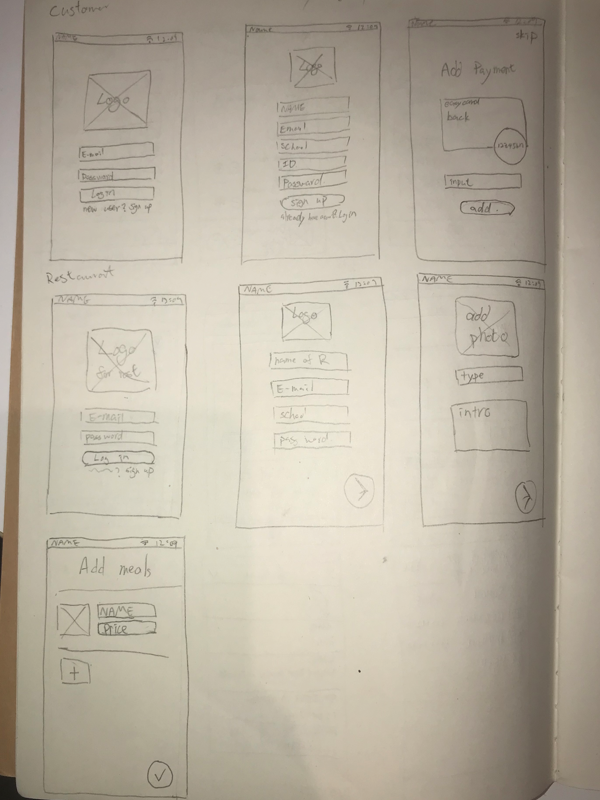 Customer
NAME 12:09
Logo
E-mail
Password
Log in
new user? Sign up
Name 12:09
Logo
NAME
Email
School
ID
Password
sign up
Name
skip
Add Payment
back
input
add.
Restaurant
NAME 12:09
Logo
for rest
E-mail
password
Log In
? sign up
NAME 12:09
Logo
name of R
E-mail
school
pass word
NAME
add
photo
type
intro
NAME 12:09
Add meals
NAME
Price
+